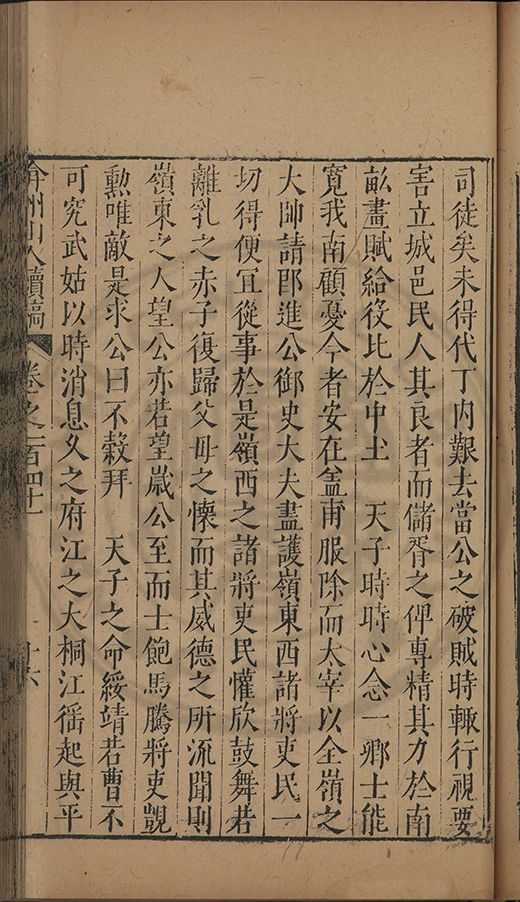 司徒矣未得代丁内艱去當公之破賊時輙行視要
害立城邑民人其良者而儲胥之俾專精其力於南
畝畫賦給役比於中土　天子時時心念一鄉士能
寛我南顧憂今者安在盖甫服除而太宰以全嶺之
大帥請郎進公御史大夫盡護嶺東西諸將吏民一
切得便冝從事於是嶺西之諸將吏民懽欣鼓舞若
離乳之赤子復歸父母之懷而其威德之所流聞則
嶺東之人望公亦若望嵗公至而士飽馬騰將吏覬
勲唯敵是求公曰不榖拜　天子之命綏靖若曹不
可究武姑以時消息久之府江之大桐江徭起與平
弇州山人續稿　卷之一百四十一　十六